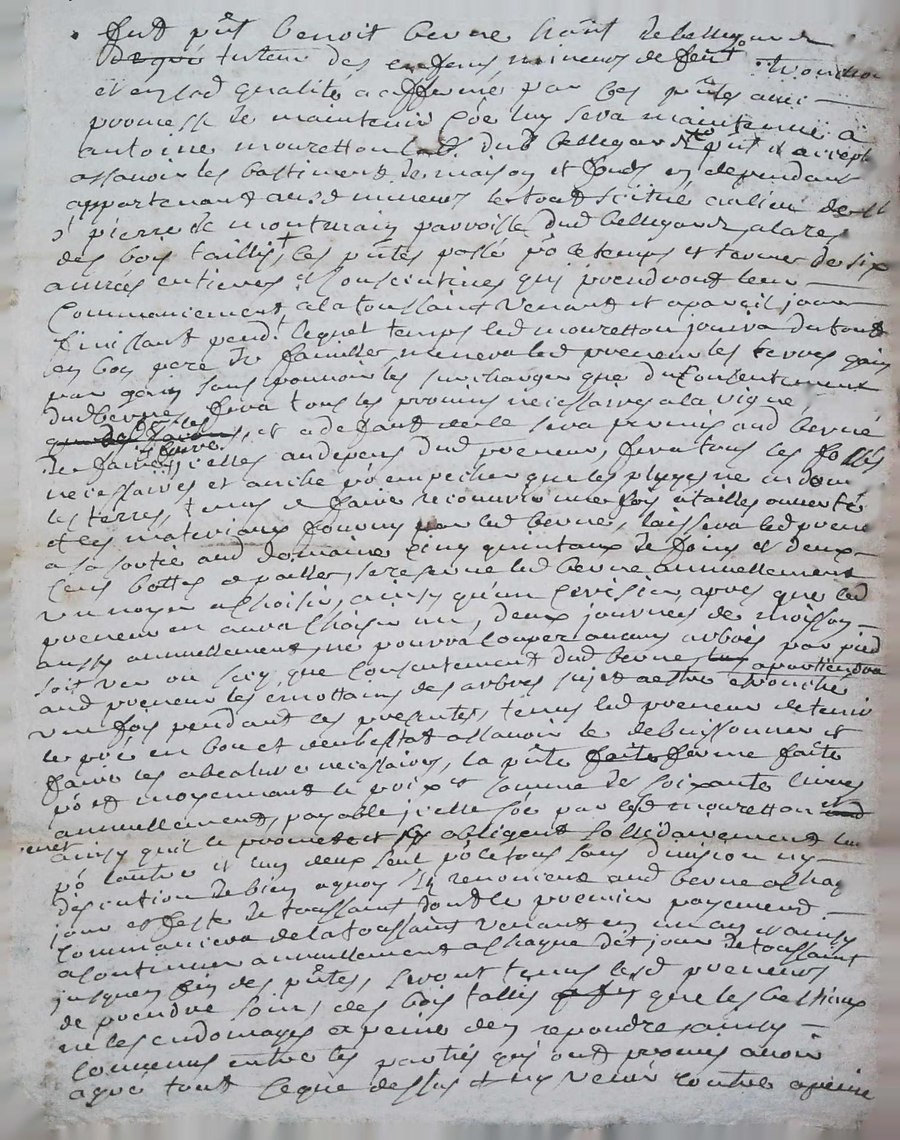 fut pñt benoit berne hañt de bellegarde
tuteur des enfans mineurs de feut
et en lad qualité a affermé par ces pñtes avec
promesse de maintenir a
antoine mouretton dud bellegarde pñt et accept
assavoir les bastiments de maison et fonds en dependant
appartenant ausd mineurs le tout scitué au lieu de
s' pierre de montmain parroisse dud bellegarde, alares
des bois taillis, ces pñtes passé põ le temps et terme de six
années entieres et consecutives qui prendront leur
commancement a la toussaint venant et a pareil jour
finissant pend' lequel temps led mouretton jouira du tout
en bon pere de famille, menera led preneur les terres gain
par gain sans pouvoir les surcharger que du consentement
dud berne, fera tous les provins necessaires a la vigne,
et a defaut de le sera permis aud berne
de faire icelles audepens dud preneur, fera tous les fossés
necessaires et an che põ empecher que les pluyes ne
les terres, tenus de faire recouvrir une fois a tailles ouverte
et les materiaux fournis par led berne, laissera led preneur
a sa sortie aud domaine cinq quintaux de foins et deux
cens bottes de paille, se reserve led berne annuellement
un noyer a choisir, ainsy qu'un cerisier, apres que led
preneur en aura choisi un, deux journées de moisson
aussy annuellement, ne pourra couper aucuns arbres par pied
soit ver ou secq, que consentement dud berne, apartiendra
aud preneur les emottains des arbres sujet a estre etronché
une fois pendant ces presentes, tenus led preneur de tenir
le pré en bon et deub estat assavoir le debuissonner et
faire les necessaires, la pñte ferme faite
põ et moyennant le prix et somme de soixante livres
annuellement, payable icelle par led mouretton
ainsy qu'il le promet et obligent sollidairement lun
põ lautre et un deux seul põ le tous sans division ny
discution de bien aquoy ils renoncent aud berne a chaq
jour et feste de toussaint dont le premier payement
commancera de la toussaint venant en un an et ainsy
a continuer annuellement a chaque dit jour de toussaint
jusquen fin des pñtes, seront tenus lesd preneurs
de prendre soin, des bois tallis que les bestiaux
ne les endomages a peine den repondre, ainsy
convenus entre les parties qui ont promis avoir
agré tout ceque dessus et ny venir contre apeine